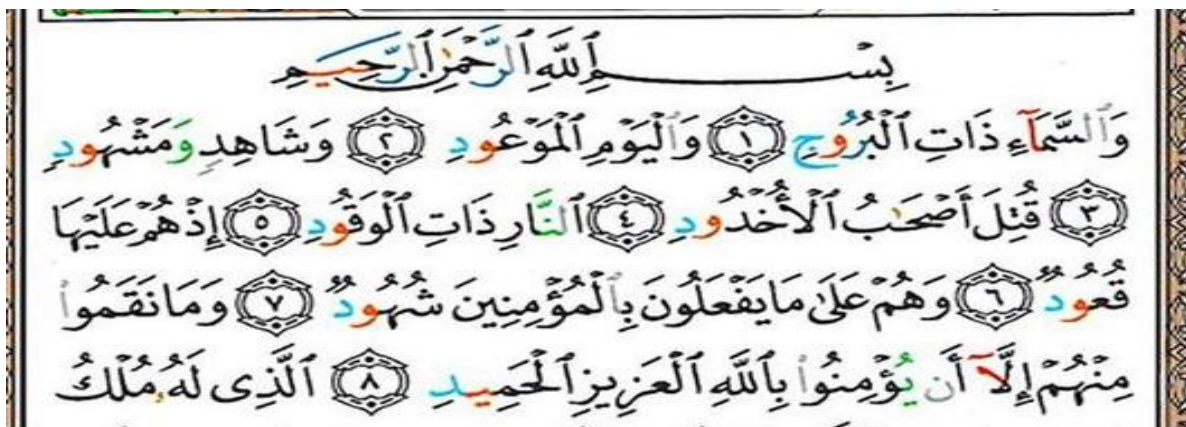 بِسْمِ ٱللَّهِ ٱلرَّحْمَٰنِ ٱلرَّحِيمِ
وَٱلسَّمَآءِ ذَاتِ ٱلْبُرُوجِ ١ وَٱلْيَوْمِ ٱلْمَوْعُودِ ٢ وَشَاهِدٍ وَمَشْهُودٍ
٣ قُتِلَ أَصْحَٰبُ ٱلْأُخْدُودِ ٤ ٱلنَّارِ ذَاتِ ٱلْوَقُودِ ٥ إِذْ هُمْ عَلَيْهَا
قُعُودٌ ٦ وَهُمْ عَلَىٰ مَا يَفْعَلُونَ بِٱلْمُؤْمِنِينَ شُهُودٌ ٧ وَمَا نَقَمُوا۟
مِنْهُمْ إِلَّآ أَن يُؤْمِنُوا۟ بِٱللَّهِ ٱلْعَزِيزِ ٱلْحَمِيدِ ٨ ٱلَّذِى لَهُۥ مُلْكُ